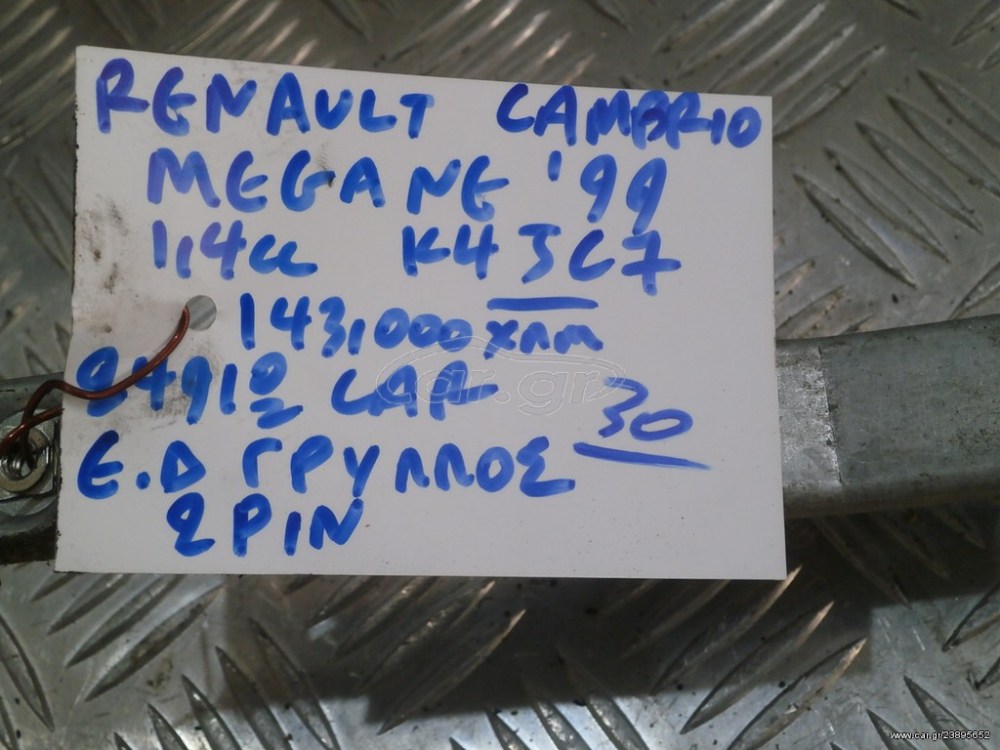 RENAULT CAMBRIO
MEGANE '99
1,4cc K4JC7
143,000 ΧΛΜ
CAR
30
Ε.Δ ΓΡΥΛΛΟΣ
2 PIN
car.gr
www.car.gr/23895652